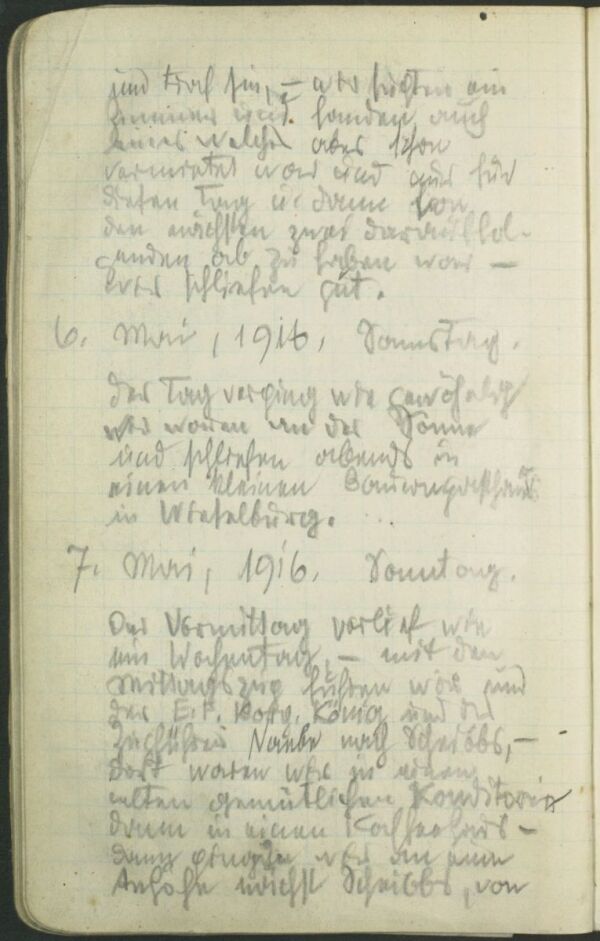 und traf sie, – wir suchten ein
Zimmer und fanden auch
eines welches aber schon
vermietet war und nur für
diesen Tag u. dann von
den nächsten zwei darauffol-
genden ab zu haben war –
wir schliefen gut.
6. Mai, 1916, Samstag.
Der Tag verging wie gewöhnlich
wir waren an der Sonne
und schliefen abends in
einen kleinen Bauerngasthaus
in Wieselburg.
7. Mai, 1916, Sonntag.
Der Vormittag verlief wie
ein Wochentag, – mit dem
Mittagszug fuhren wir und
der E. F. Korp. König und der
Zugführer nach Scheibbs, –
dort waren wir in einem
alten gemütlichen Konditorei
dann in einen Kaffeehaus –
dann gingen wir an eine
Anhöhe nächst Scheibbs, von